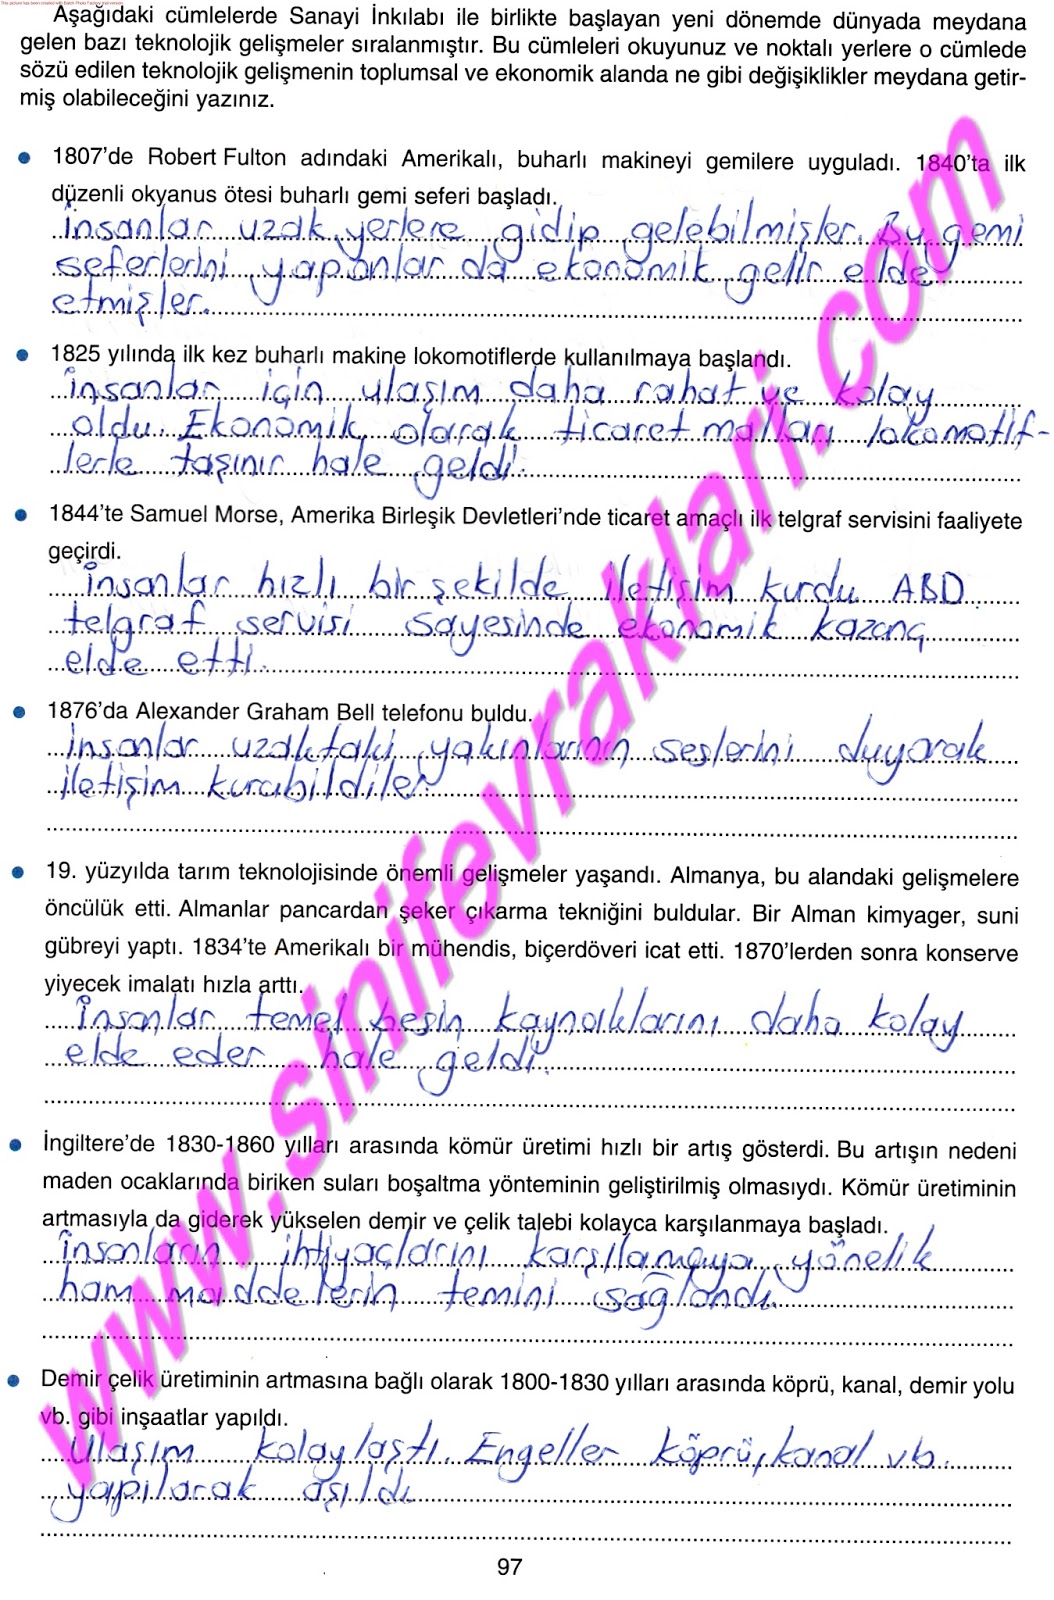 This picture has been created with Batch Photo Factory trial version
Aşağıdaki cümlelerde Sanayi İnkılabı ile birlikte başlayan yeni dönemde dünyada meydana
gelen bazı teknolojik gelişmeler sıralanmıştır. Bu cümleleri okuyunuz ve noktalı yerlere o cümlede
sözü edilen teknolojik gelişmenin toplumsal ve ekonomik alanda ne gibi değişiklikler meydana getir-
miş olabileceğini yazınız.
• 1807’de Robert Fulton adındaki Amerikalı, buharlı makineyi gemilere uyguladı. 1840’ta ilk
düzenli okyanus ötesi buharlı gemi seferi başladı.
İnsanlar uzak yerlere gidip gelebilmişler. Bu gemi
seferlerini yapanlar da ekonomik gelir elde
etmişler.
• 1825 yılında ilk kez buharlı makine lokomotiflerde kullanılmaya başlandı.
İnsanlar için ulaşım daha rahat ve kolay
oldu. Ekonomik olarak ticaret malları lokomotif-
lerle taşınır hale geldi.
• 1844’te Samuel Morse, Amerika Birleşik Devletleri’nde ticaret amaçlı ilk telgraf servisini faaliyete
geçirdi.
İnsanlar hızlı bir şekilde iletişim kurdu ABD
telgraf servisi sayesinde ekonomik kazanç
elde etti.
• 1876’da Alexander Graham Bell telefonu buldu.
İnsanlar uzaktaki yakınlarının seslerini duyarak
iletişim kurabildiler
• 19. yüzyılda tarım teknolojisinde önemli gelişmeler yaşandı. Almanya, bu alandaki gelişmelere
öncülük etti. Almanlar pancardan şeker çıkarma tekniğini buldular. Bir Alman kimyager, suni
gübreyi yaptı. 1834’te Amerikalı bir mühendis, biçerdöveri icat etti. 1870’lerden sonra konserve
yiyecek imalatı hızla arttı.
İnsanlar temel besin kaynaklarını daha kolay
elde eder hale geldi.
• İngiltere’de 1830-1860 yılları arasında kömür üretimi hızlı bir artış gösterdi. Bu artışın nedeni
maden ocaklarında biriken suları boşaltma yönteminin geliştirilmiş olmasıydı. Kömür üretiminin
artmasıyla da giderek yükselen demir ve çelik talebi kolayca karşılanmaya başladı.
İnsanların ihtiyaçlarını karşılamaya yönelik
ham maddelerin temini sağlandı.
• Demir çelik üretiminin artmasına bağlı olarak 1800-1830 yılları arasında köprü, kanal, demir yolu
vb. gibi inşaatlar yapıldı.
Ulaşım kolaylaştı. Engeller köprü, kanal vb.
yapılarak aşıldı.
97
www.sinifevraklari.com